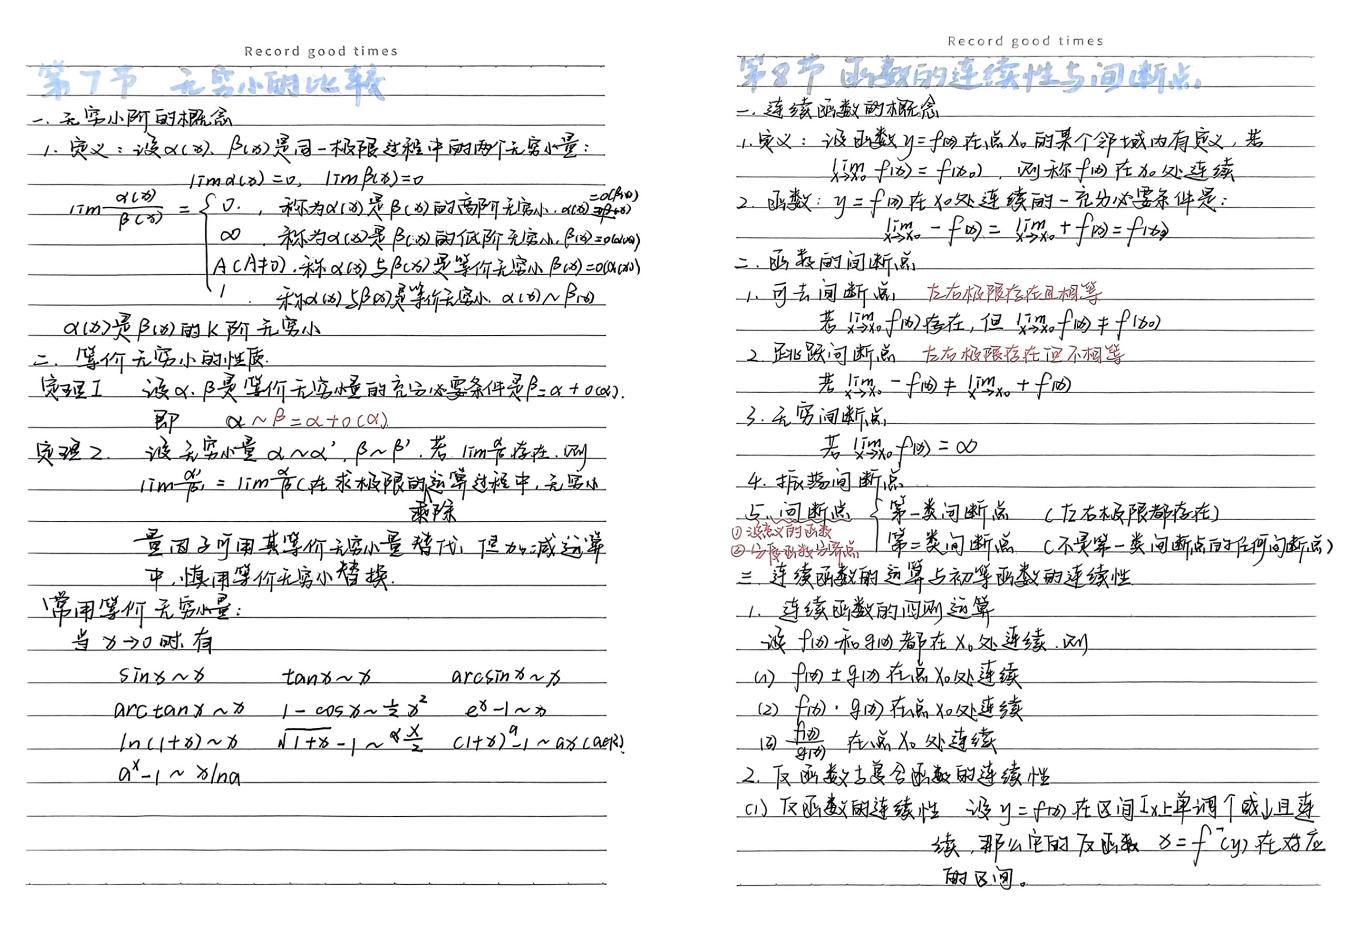 Record good times
第7节 无穷小的比较
一. 无穷小阶的概念
1. 定义：设α(x)、β(x)是同一极限过程中的两个无穷小量：
limα(x)=0, limβ(x)=0
lim α(x)/β(x) = { 0. , 称为α(x)是β(x)的高阶无穷小. α(x)=o(β(x))
∞ . 称为α(x)是β(x)的低阶无穷小. β(x)=o(α(x))
A(A≠0). 称α(x)与β(x)是等价无穷小 β(x)=O(α(x))
1 . 称α(x)与β(x)是等价无穷小. α(x)~β(x)
α(x)是β(x)的K阶无穷小
二. 等价无穷小的性质.
定理1 设α.β是等价无穷小量的充分必要条件是β=α+o(α).
即 α~β=α+o(α)
定理2. 设无穷小量α~α'.β~β'.若lim α/β 存在.则
lim α'/β' = lim α/β (在求极限的运算过程中,无穷小
乘除
量因子可用其等价无穷小量替代, 但加减运算
中,慎用等价无穷小替换.
常用等价无穷小量:
当x→0时.有
sinx~x tanx~x arcsinx~x
arctanx~x 1-cosx~½x² eˣ-1~x
ln(1+x)~x √1+x -1~ x/2 (1+x)ᵃ-1~ax(a∈R).
aˣ-1~xlna
Record good times
第8节 函数的连续性与间断点
一. 连续函数的概念
1.定义：设函数y=f(x)在点x₀的某个邻域内有定义, 若
lim x→x₀ f(x)=f(x₀) , 则称f(x)在x₀处连续
2. 函数: y=f(x)在x₀处连续的一充分必要条件是:
lim x→x₀- f(x) = lim x→x₀+ f(x)=f(x₀)
二.函数的间断点
1. 可去间断点 左右极限存在且相等
若 lim x→x₀ f(x)存在,但 lim x→x₀ f(x)≠f(x₀)
2. 跳跃间断点 左右极限存在但不相等
若 lim x→x₀- f(x)≠ lim x→x₀+ f(x)
3. 无穷间断点
若 lim x→x₀ f(x)=∞
4.振荡间断点
5. 间断点 { 第一类间断点 (左右极限都存在)
①没意义的函数
②分段函数分界点
第二类间断点 (不是第一类间断点的任何间断点)
三 连续函数的运算与初等函数的连续性
1. 连续函数的四则运算
设 f(x)和g(x)都在x₀处连续.则
(1) f(x)±g(x)在点x₀处连续
(2) f(x)·g(x)在点x₀处连续
(3) f(x)/g(x) 在点x₀处连续
2. 反函数与复合函数的连续性
(1) 反函数的连续性 设y=f(x)在区间Ix上单调↑或↓且连
续,那么它的反函数 x=f⁻¹(y)在对应
的区间。